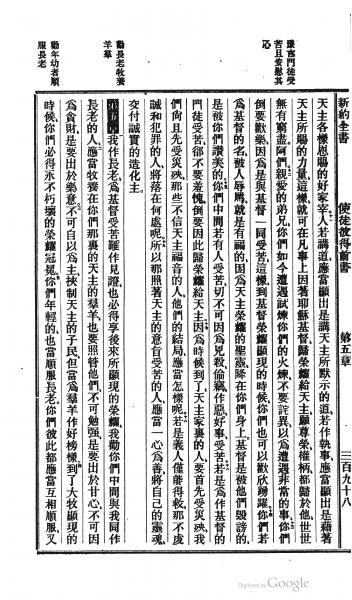 新約全書
使徒彼得前書
第五章
三百九十八
豫言門徒受
苦且安慰其
心
勸長老牧養
羊羣
勸年幼者順
服長老
天主各樣恩賜的好家宰、人若講道、應當顯出是講天主所默示的道、若作執事、應當顯出是藉著
天主所賜的力量、這樣就可在凡事上因著耶穌基督、歸榮耀給天主、願尊榮權柄、都歸於他、世世
無有窮盡、阿們、親愛的弟兄、你們如今遭遇試煉你們的火煉、不要詫異、以為遭遇非常的事、你們
倒要歡樂、因為是與基督一同受苦、這樣到基督榮耀顯現的時候、你們也可以歡欣踴躍、你們若
為基督的名、被人辱罵、就是有福的、因為天主榮耀的聖靈、降在你們身上、基督是被他們毀謗的、
是被你們讚美的、你們中間若有人受苦、切不可因為兇殺偷竊作惡好事受苦、若是為作基督的
門徒受苦、卻不要羞愧、倒要因此歸榮耀給天主、因為時候到了、天主家裏的人、要首先受災殃、我
們尚且先受災殃、那些不信天主福音的人、他們的結局應當怎樣呢、若是義人僅能得救、那不虔
誠和犯罪的人、將落在何處呢、所以那照著天主的意旨受苦的人、應當一心為善、將自己的靈魂、
交付誠實的造化主、
第五章 我作長老、為基督受苦難作見證、也必得享後來所顯現的榮耀、我勸你們中間與我同作
長老的人、應當牧養在你們那裏的天主的羊羣、也要照管他們、不可勉強、是要出於甘心、不可因
為貪財、是要出於樂意、不可自以為主、挾制天主的子民、但當為羣羊作好榜樣、到了大牧顯現的
時候、你們必得永不朽壞的榮耀冠冕、你們年輕的、也當順服長老、你們彼此都應當互相順服、又
Digitized by Google